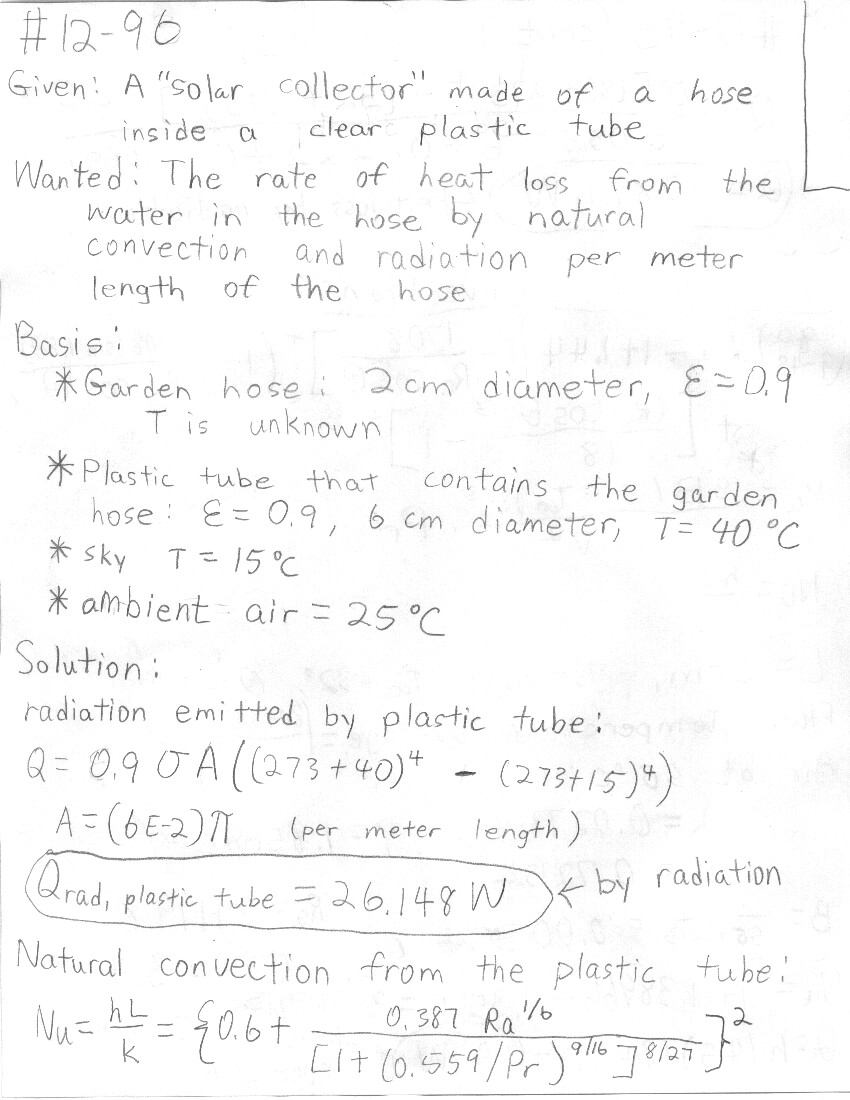 #12-96
Given: A "solar collector" made of a hose
inside a clear plastic tube
Wanted: The rate of heat loss from the
water in the hose by natural
convection and radiation per meter
length of the hose
Basis:
* Garden hose: 2 cm diameter, ε = 0.9
T is unknown
* Plastic tube that contains the garden
hose: ε = 0.9, 6 cm diameter, T = 40 °C
* sky T = 15 °C
* ambient air = 25 °C
Solution:
radiation emitted by plastic tube:
Q = 0.9 σ A ((273 + 40)⁴ - (273 + 15)⁴)
A = (6E-2)π (per meter length)
Qrad, plastic tube = 26.148 W ← by radiation
Natural convection from the plastic tube:
Nu = hL/k = {0.6 + 0.387 Ra^1/6 / [1 + (0.559/Pr)^9/16]^8/27}²